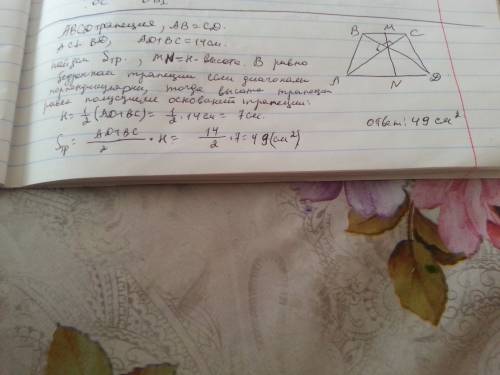 ABCD трапеция, AB = CD.
AC⊥BD, AD+BC=14см.
найдём Sтр., MN=H-высота. В равно
бедренной трапеции если диагонали
перпендикулярны, тогда высота трапеции
равна полусумме оснований трапеции:
H = 1/2 (AD+BC) = 1/2 · 14см = 7см.
Sтр = AD+BC/2 · H = 14/2 · 7 = 49(см²)
B M C
A N D
ответ: 49 см²